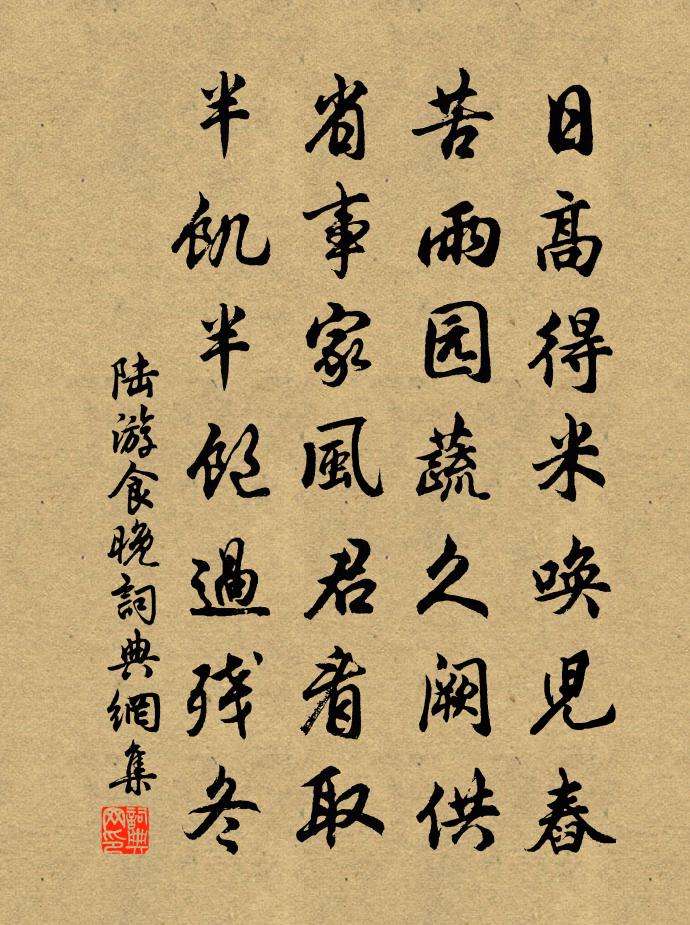 日高得米唤児舂
苦雨园蔬久阙供
省事家風君看取
半飢半飽過残冬
陆游食晚詞典網集
詞典网印